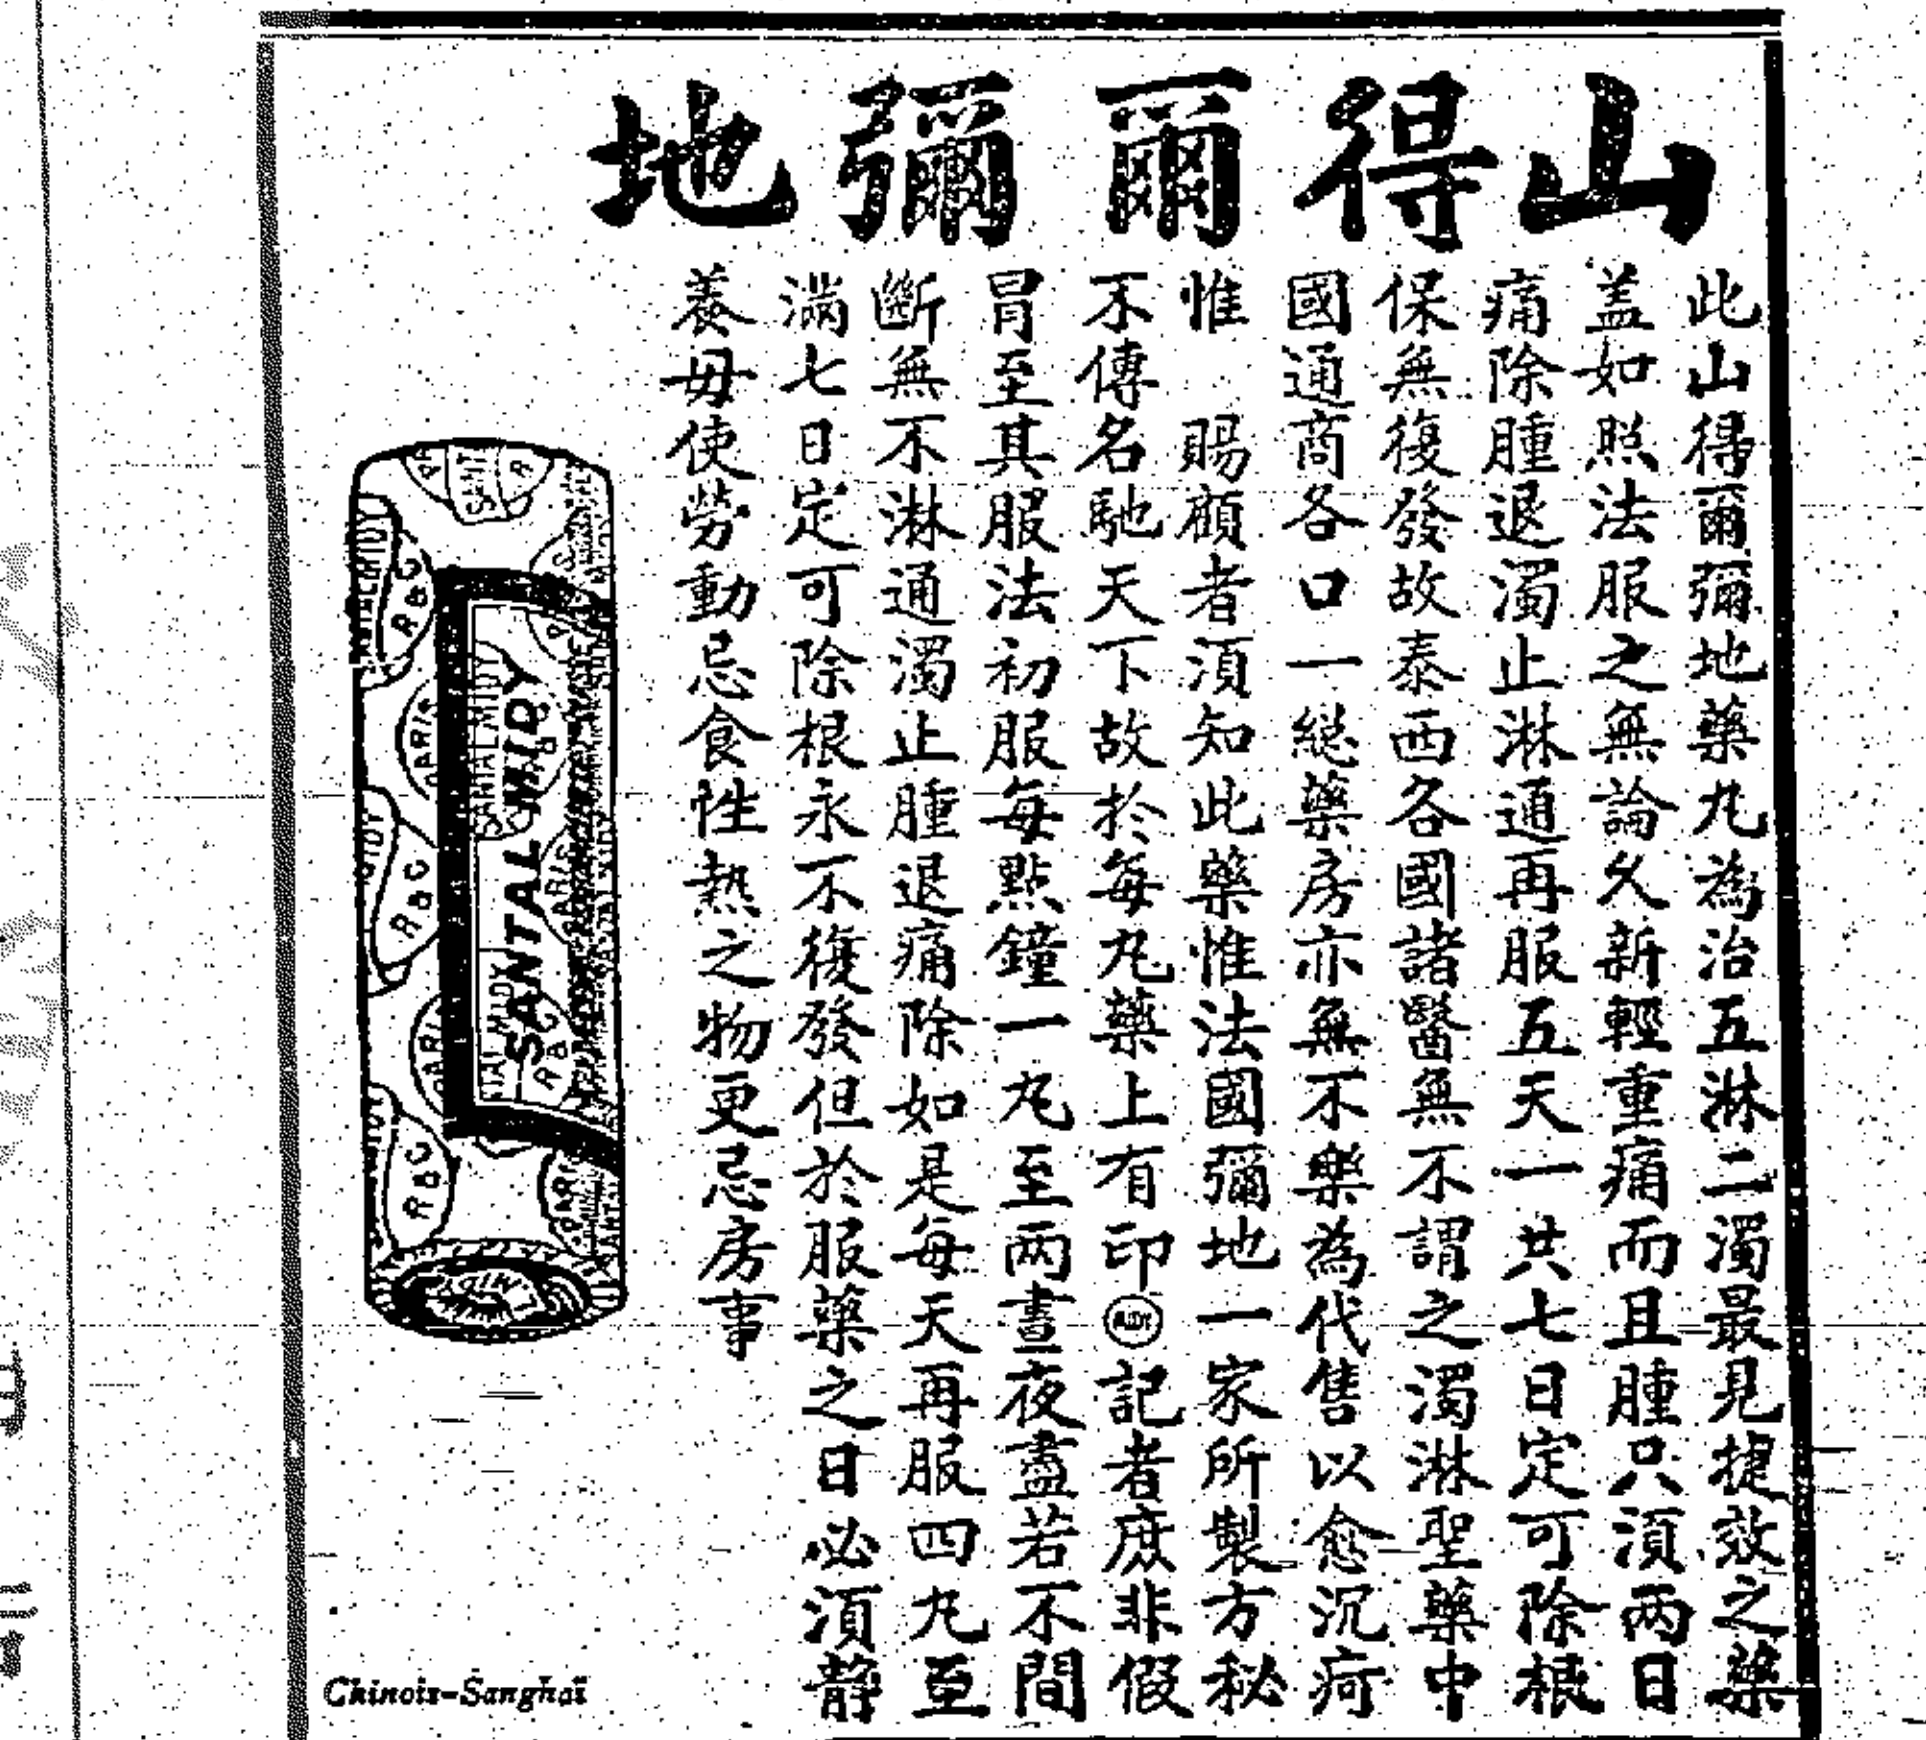 山得爾彌地
此山得爾彌地藥丸為治五淋二濁最見捷效之藥
蓋如照法服之無論久新輕重痛而且腫只須两日
痛除腫退濁止淋通再服五天一共七日定可除根
保無復發故泰西各國諸醫無不謂之濁淋聖藥中
國通商各口一總藥房亦無不樂為代售以愈沉疴
惟　賜顧者須知此藥惟法國彌地一家所製方秘
不傳名馳天下故於每丸藥上有印MIDY記者庶非假
冒至其服法初服每點鐘一丸至两晝夜盡若不間
斷無不淋通濁止腫退痛除如是每天再服四丸至
滿七日定可除根永不復發但於服藥之日必須静
養毋使勞動忌食性熱之物更忌房事
SANTAL MIDY
Chinois-Sanghaï